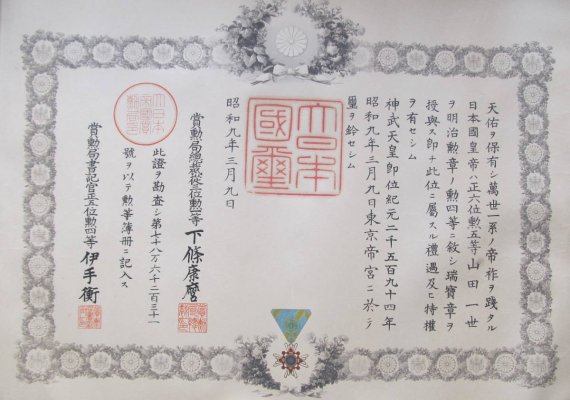 天佑ヲ保有シ萬世一系ノ帝祚ヲ踐タル
日本國皇帝ハ正六位勲五等山田一世
ヲ明治勲章ノ勲四等ニ敍シ瑞寶章ヲ
授與ス即チ此位ニ屬スル禮遇及ヒ特權
ヲ有セシム
神武天皇即位紀元二千五百九十四年
昭和九年三月九日東京帝宮ニ於テ
璽ヲ鈐セシム
大日本
國璽
昭和九年三月九日
賞勲局總裁從二位勲一等下條康麿
此證ヲ勘査シ第七十八万六千二百三十一
號ヲ以テ勲等簿冊ニ記入ス
賞勲局書記官正五位勲四等伊手衡